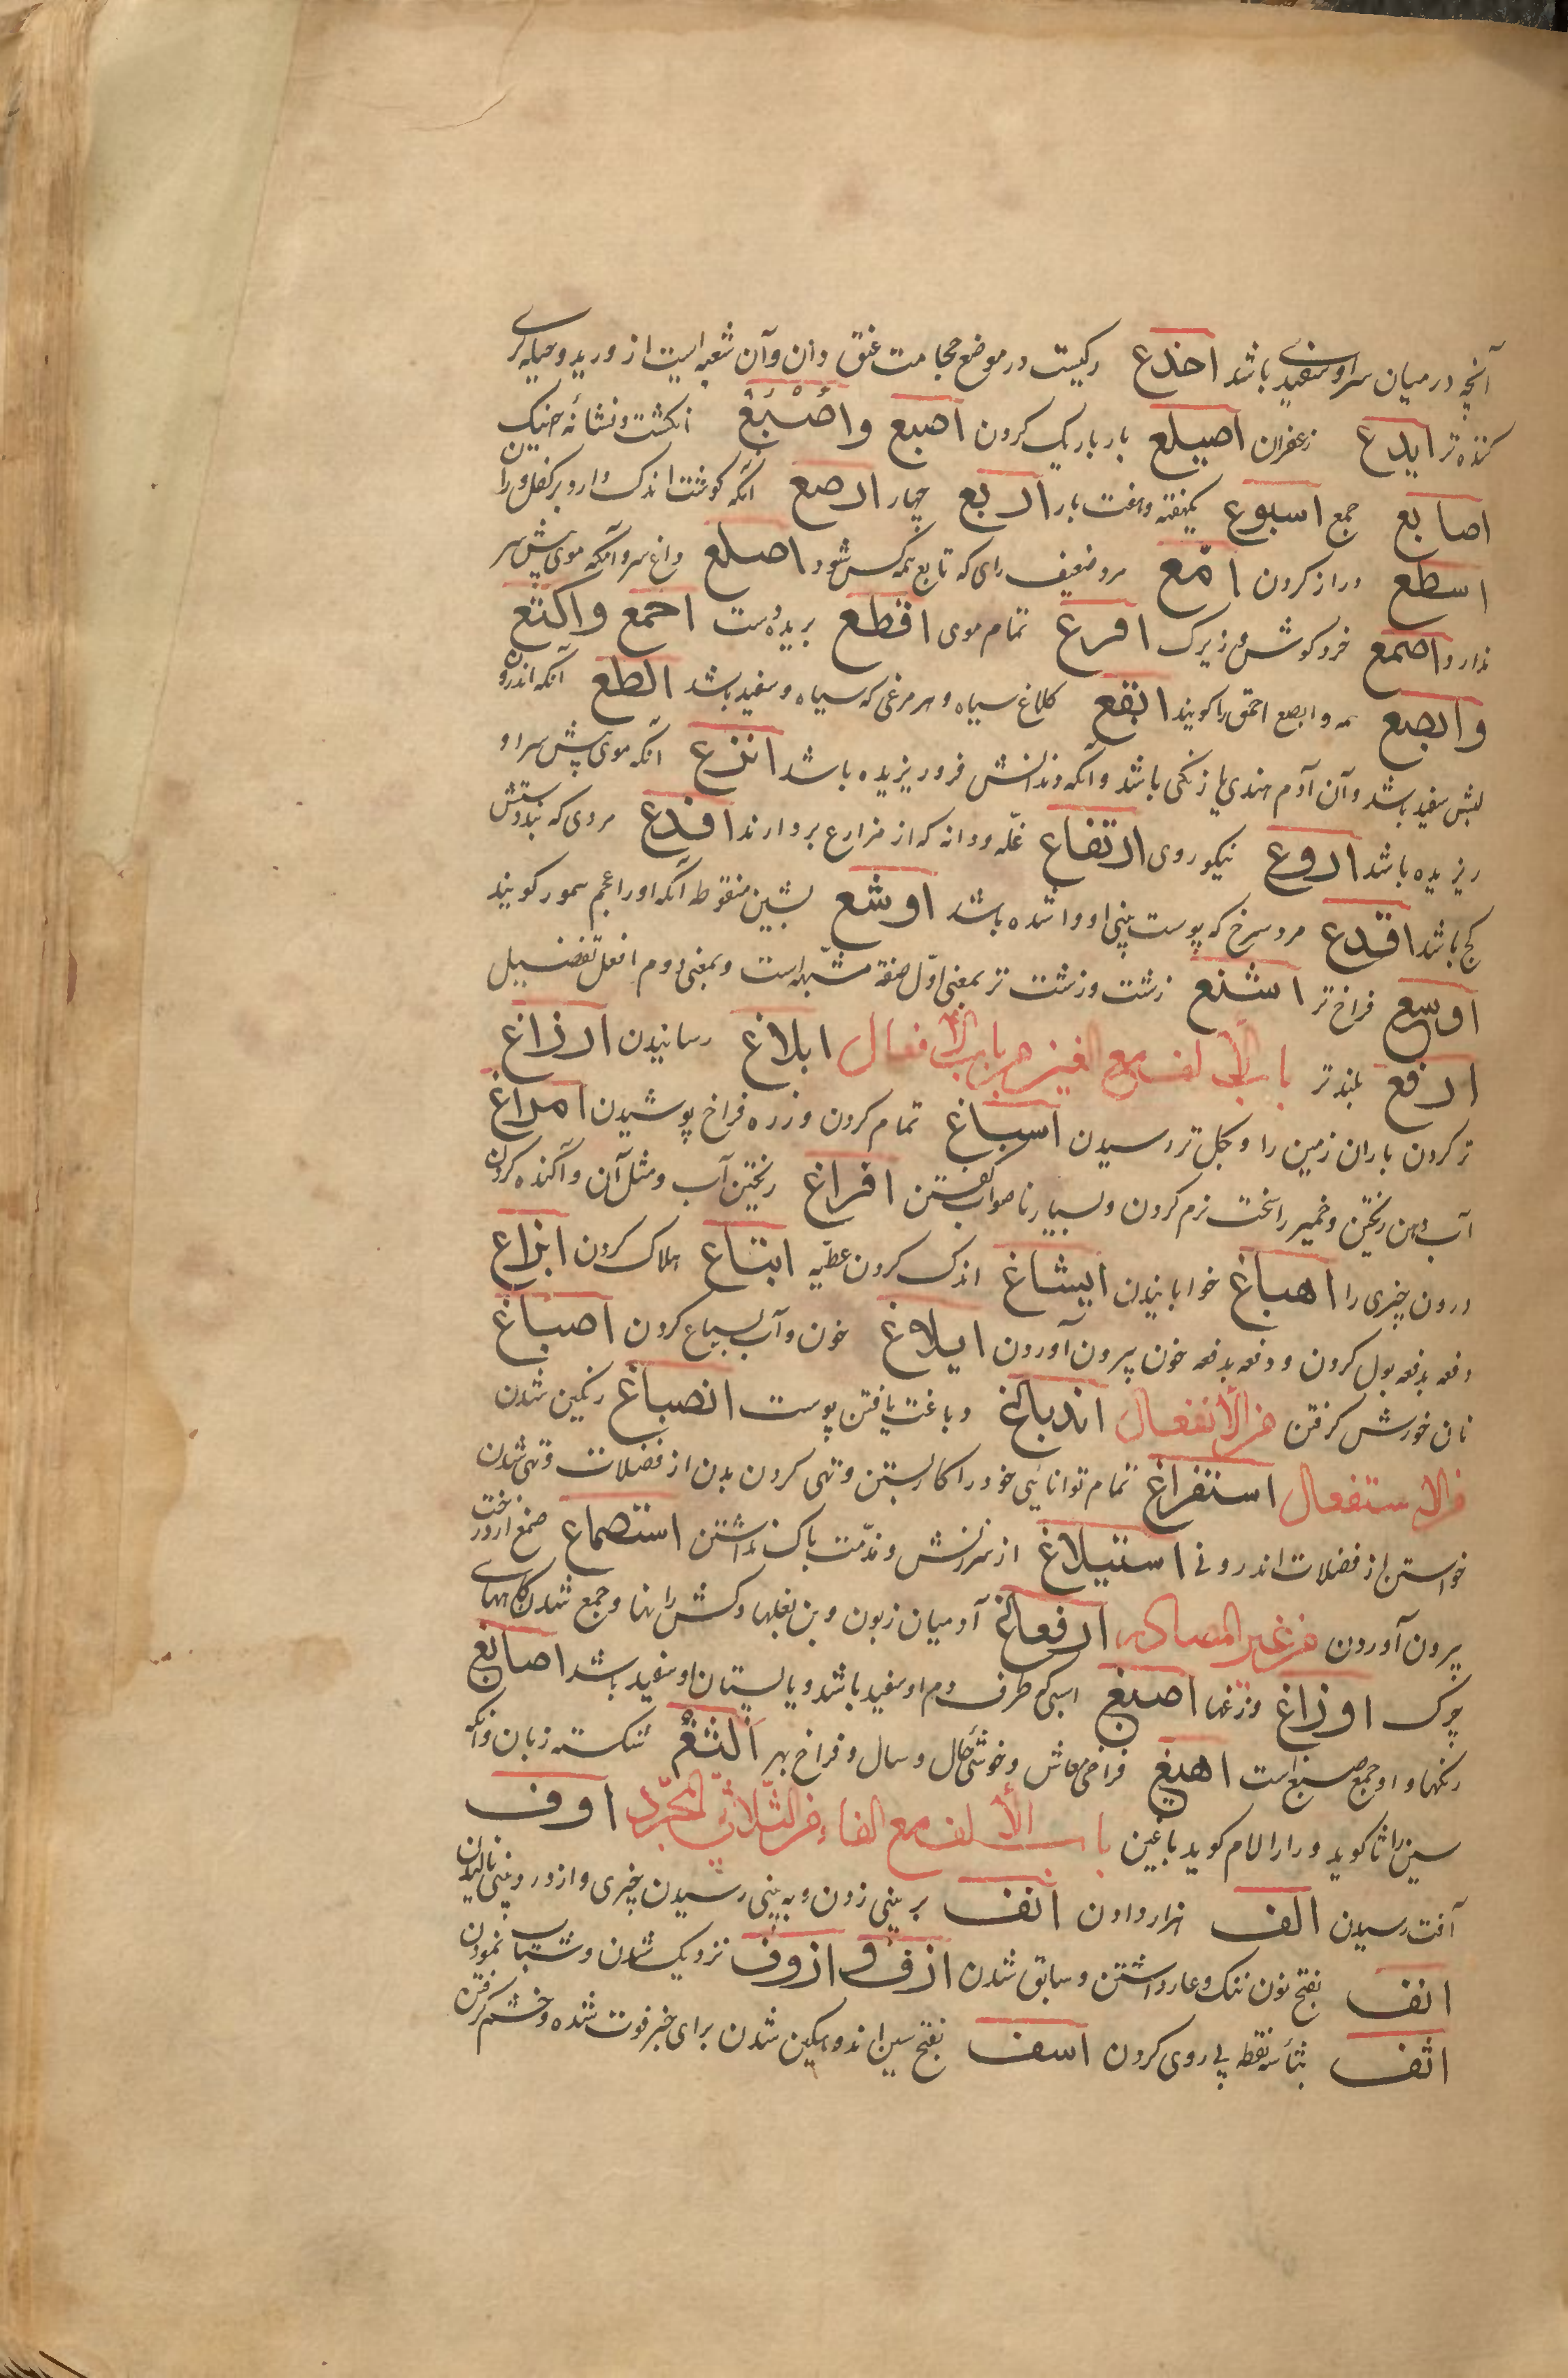 آنچه در میان سر او سفیدی باشد اخدع رگیست در موضع حجامت عنق و ان و آن شعبه ایست از ورید و حیله گری
کننده تر ایدع زعفران اصیلع بار باریک کردن اصبع واصبع انکشت و نشانهٔ جنیک
اصابع جمع اسبوع یکهفته و هفت بار اربع چهار ارصع آنکه کوشت اندک دارد بر کفل و ران
اسطع دراز کردن امّع مرد ضعیف رای که تابع همه کس شود اصلع داغ سر و آنکه موی پیش سر
ندارد اصمع خرد کوش و زیرک افرع تمام موی اقطع بریده دست اجمع واکتع
وابصع همه و ابصع احمق را کویند ابقع کلاغ سیاه و هر مرغی که سیاه و سفید باشد الطع آنکه اندرون
لبش سفید باشد و آن آدم هندی یا زنکی باشد و آنکه دندانش فرو ریزیده باشد انزع آنکه موی پیش سر او
ریزیده باشد اروع نیکو روی ارتفاع غلّه و دانه که از مزارع بردارند افدع مردی که بند دستش
کج باشد اقدع مرد سرخ که پوست بینی او وا شده باشد اوشع بشین منقوطه آنکه او را عجم سمور کویند
اوسع فراخ تر اشنع زشت و زشت تر بمعنی اوّل صفة مشبّهه است و بمعنی دوم افعل تفضیل
ارفع بلندتر باب الألف مع الغین من باب الأفعال ابلاغ رسانیدن ارزاغ
تر کردن باران زمین را و بکل تر رسیدن اسباغ تمام کردن و زره فراخ پوشیدن امراغ
آب دهن ریختن و خمیر را سخت نرم کردن و بسیار ناصواب کفتن افراغ ریختن آب و مثل آن و آکنده کردن
درون چیزی را اهباغ خوابانیدن ایشاغ اندک کردن عطیّه ابتاغ هلاک کردن ابزاغ
دفعه بدفعه بول کردن و دفعه بدفعه خون بیرون آوردن ایلاغ خون و آب بسباع کردن اصباغ
نان خورش کرفتن من الأنفعال اندباغ دباغت یافتن پوست انصباغ رنکین شدن
من الاستفعال استفراغ تمام توانایی خود را کار بستن و تهی کردن بدن از فضلات و تهی شدن
خواستن از فضلات اندرونی استیلاغ از سرزنش و مذّمت باک نداشتن استصماغ صمغ از درخت
بیرون آوردن من غیر المصادر ارفاغ آدمیان زبون و بن بغلها و کش رانها و جمع شدن کاههای
چرک اوزاغ وزغها اصبغ اسبی که طرف دم او سفید باشد و یا پستان او سفید باشد اصابغ
رنکها و او جمع صبغ است اهیغ فراخی معاش و خوشی حال و سال و فراخ بهر الثغ شکسته زبان و آنکه
سین را ثا کوید و را را لام کوید یا غین باب الألف مع الفاء من الثّلاثی المجرّد اوف
آفت رسیدن الف هزار دادن انف بر بینی زدن و به بینی رسیدن چیزی و از درد بینی نالیدن
انف بفتح نون ننک و عار داشتن و سابق شدن ازف و ازوف نزدیک شدن و شتاب نمودن
اثف بثاء سه نقطه پی روی کردن اسف بفتح سین اندوهکین شدن برای خبر فوت شده و خشم کرفتن